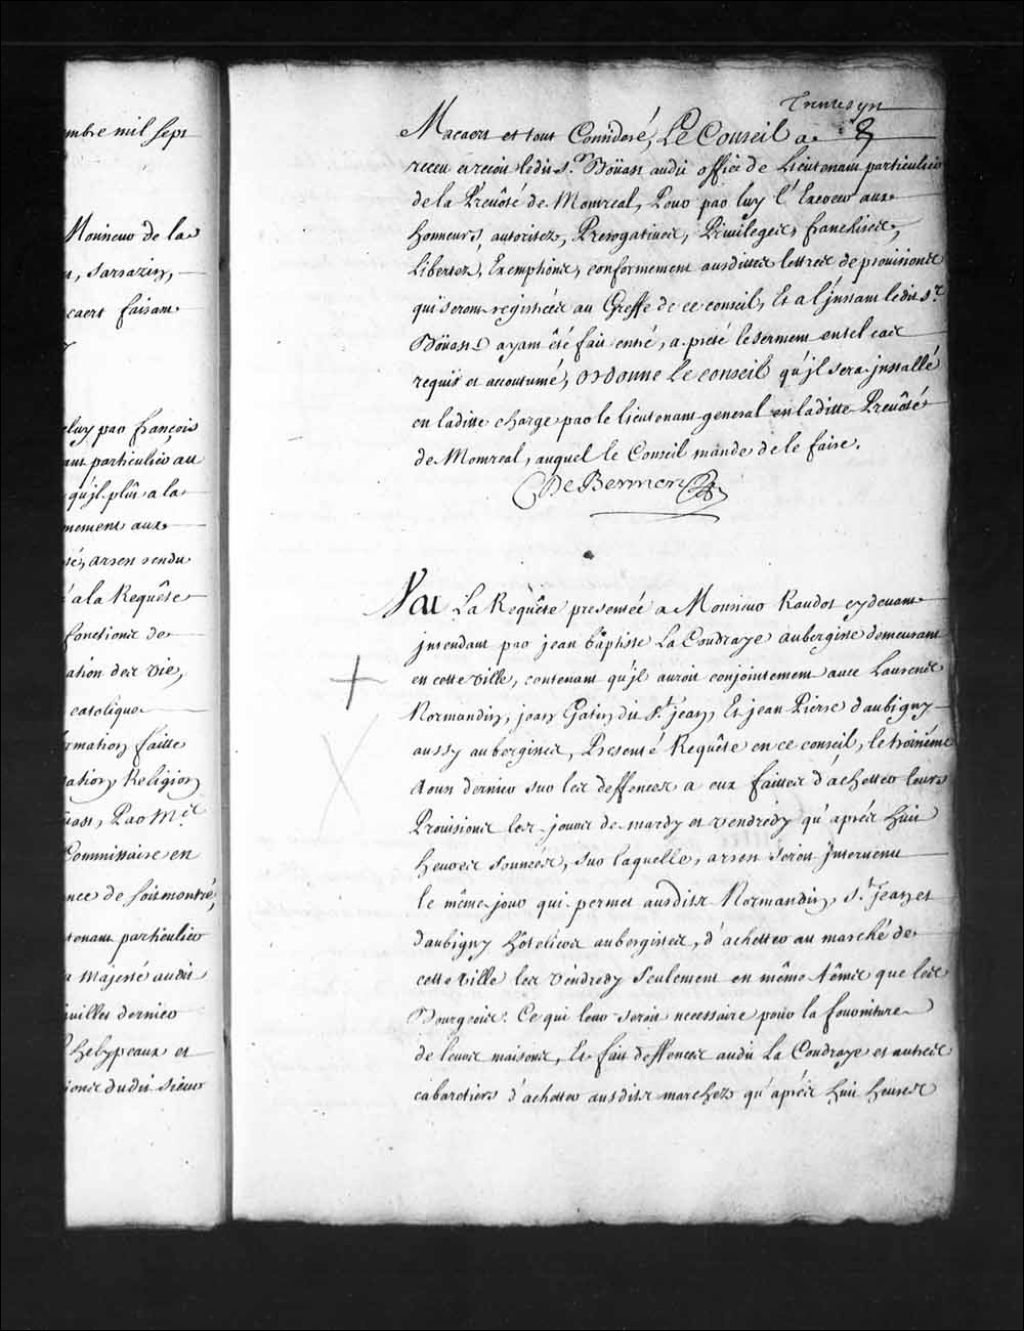 mbre mil sept
Monsieur de la
n, sarrazin,
caert faisant
eluy par françois
ant particulier au
qu'jl plût a la
mement aux
té, arest rendu
a la Requête
fonctions de
ation des vie,
catolique
rmation faitte
ation Religion
üast, Par M.e
Commissaire en
nce de soit montré,
tenant particulier
a Majesté audit
juillet dernier
helyppeaux et
ions dudit sieur
Trentesix
Macaert et tout Consideré, Le Conseil a
receu et reçoit ledit S.r Boüast audit office de Lieutenant particulier
de la Prevôté de Montreal, Pour par luy l'Exercer aux
honneurs, autoritez, Prerogatives, Privileges, franchises,
Libertez, Exemptions, conformement ausdittes lettres de provisions
qui seront registrées au Greffe de ce conseil, Et a l'jnstant ledit S.r
Boüast ayant été fait entré, a preté le serment en tel cas
requis et accoutumé, ordonne Le conseil qu'jl sera jnstallé
en laditte charge par le lieutenant general en laditte Prevôté
de Montreal, auquel le Conseil mande de le faire.
DeBermen
Veu La Requête presentée a Monsieur Raudot cydevant
jntendant par jean baptiste La Coudraye aubergiste demeurant
en cette ville, contenant qu'jl auroit conjointement avec Laurens
Normandin, jean Gatin dit S.t jean, Et jean Pierre d'aubigny
aussy aubergistes, Presenté Requête en ce conseil, le troisiéme
Aoust dernier sur les deffences a eux faittes d'achetter leurs
Provisions les jours de mardy et vendredy qu'aprés huit
heures sonnées, sur laquelle, arest seroit jntervenu
le même jour qui permet ausdits Normandin, S.t Jean et
d'aubigny hôteliers aubergistes, d'achetter au marché de
cette ville les vendredy seulement en même têms que les
Bourgeois. Ce qui leur seroit necessaire pour la fourniture
de leurs maisons, Et fait deffences audit La Coudraye et autres
cabaretiers d'achetter ausdits marchez qu'aprés huit heures